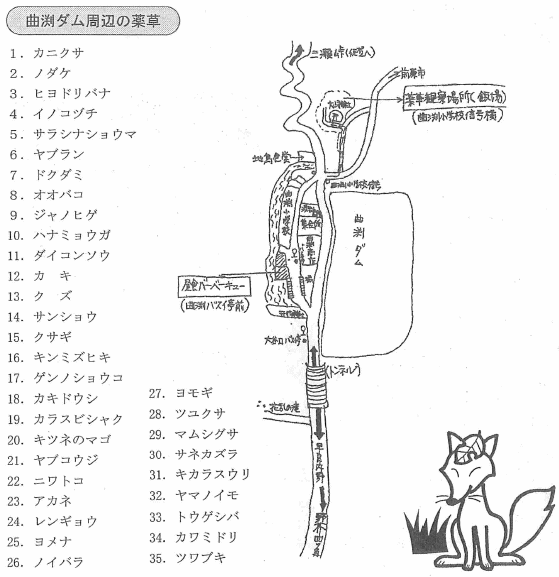 曲渕ダム周辺の薬草
1．カニクサ
2．ノダケ
3．ヒヨドリバナ
4．イノコヅチ
5．サラシナショウマ
6．ヤブラン
7．ドクダミ
8．オオバコ
9．ジャノヒゲ
10．ハナミョウガ
11．ダイコンソウ
12．カ　キ
13．ク　ズ
14．サンショウ
15．クサギ
16．キンミズヒキ
17．ゲンノショウコ
18．カキドウシ
19．カラスビシャク
20．キツネのマゴ
21．ヤブコウジ
22．ニワトコ
23．アカネ
24．レンギョウ
25．ヨメナ
26．ノイバラ
27．ヨモギ
28．ツユクサ
29．マムシグサ
30．サネカズラ
31．キカラスウリ
32．ヤマノイモ
33．トウゲシバ
34．カワミドリ
35．ツワブキ
三瀬峠
前原市
薬草観察場所
(曲渕小学校信号横)
曲渕小学校
曲渕ダム
昼食バーベキュー
(曲渕バス停前)
大谷口バス停
(トンネル)